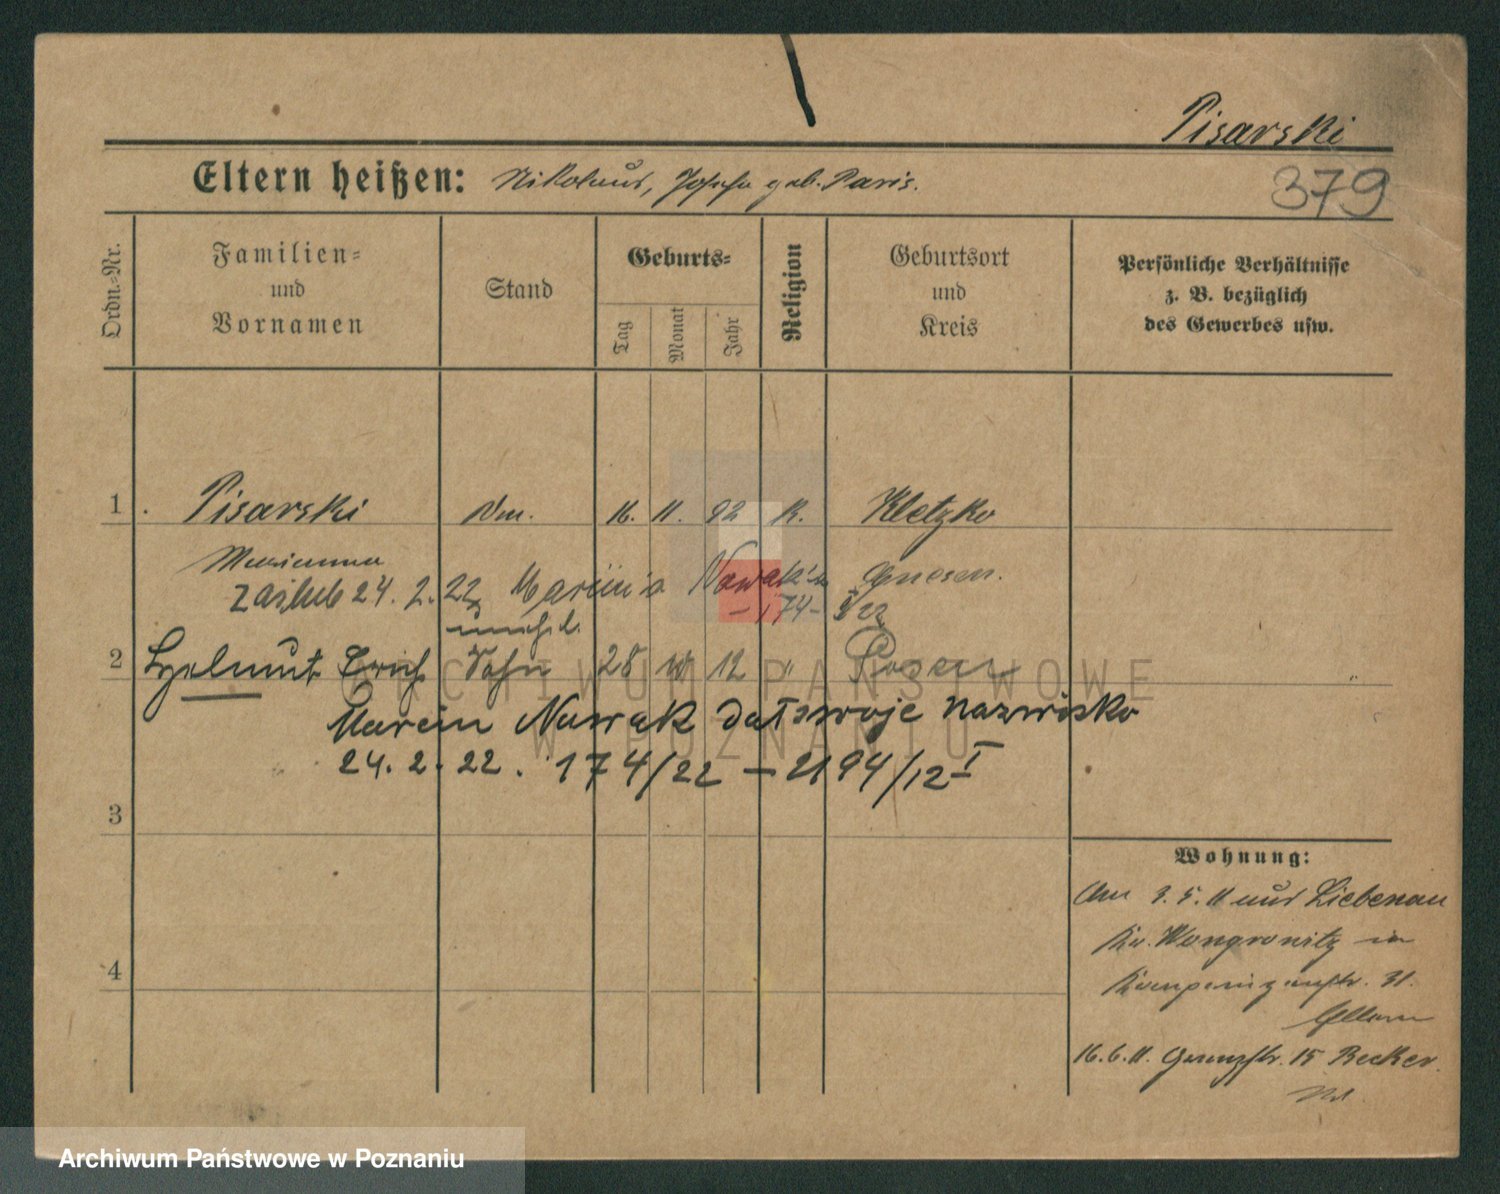 Pisarski
Eltern heißen: Nikolaus, Josefa geb. Paris.
379
Ordn.-Nr.
Familien-
und
Vornamen
Stand
Geburts-
Tag
Monat
Jahr
Religion
Geburtsort
und
Kreis
Persönliche Verhältnisse
z. B. bezüglich
des Gewerbes usw.
1 Pisarski 16. 11. 92 K. Kletzko
Marianna
zaślub 24. 2. 22 Nowak Gnesen.
174 I/22
unehel.
2 Helmut Erich Sohn 28 12 " Posen
ARCHIWUM PAŃSTWOWE
W POZNANIU
Marcin Nowak dał swoje nazwisko
24. 2. 22. 174/22 – 2194/12 I
3
4
Wohnung:
Am 3. 5. 11 aus Liebenau
Kr. Wongrowitz in
31.
16. 6. 11. Grenzstr. 15 Becker.
Archiwum Państwowe w Poznaniu